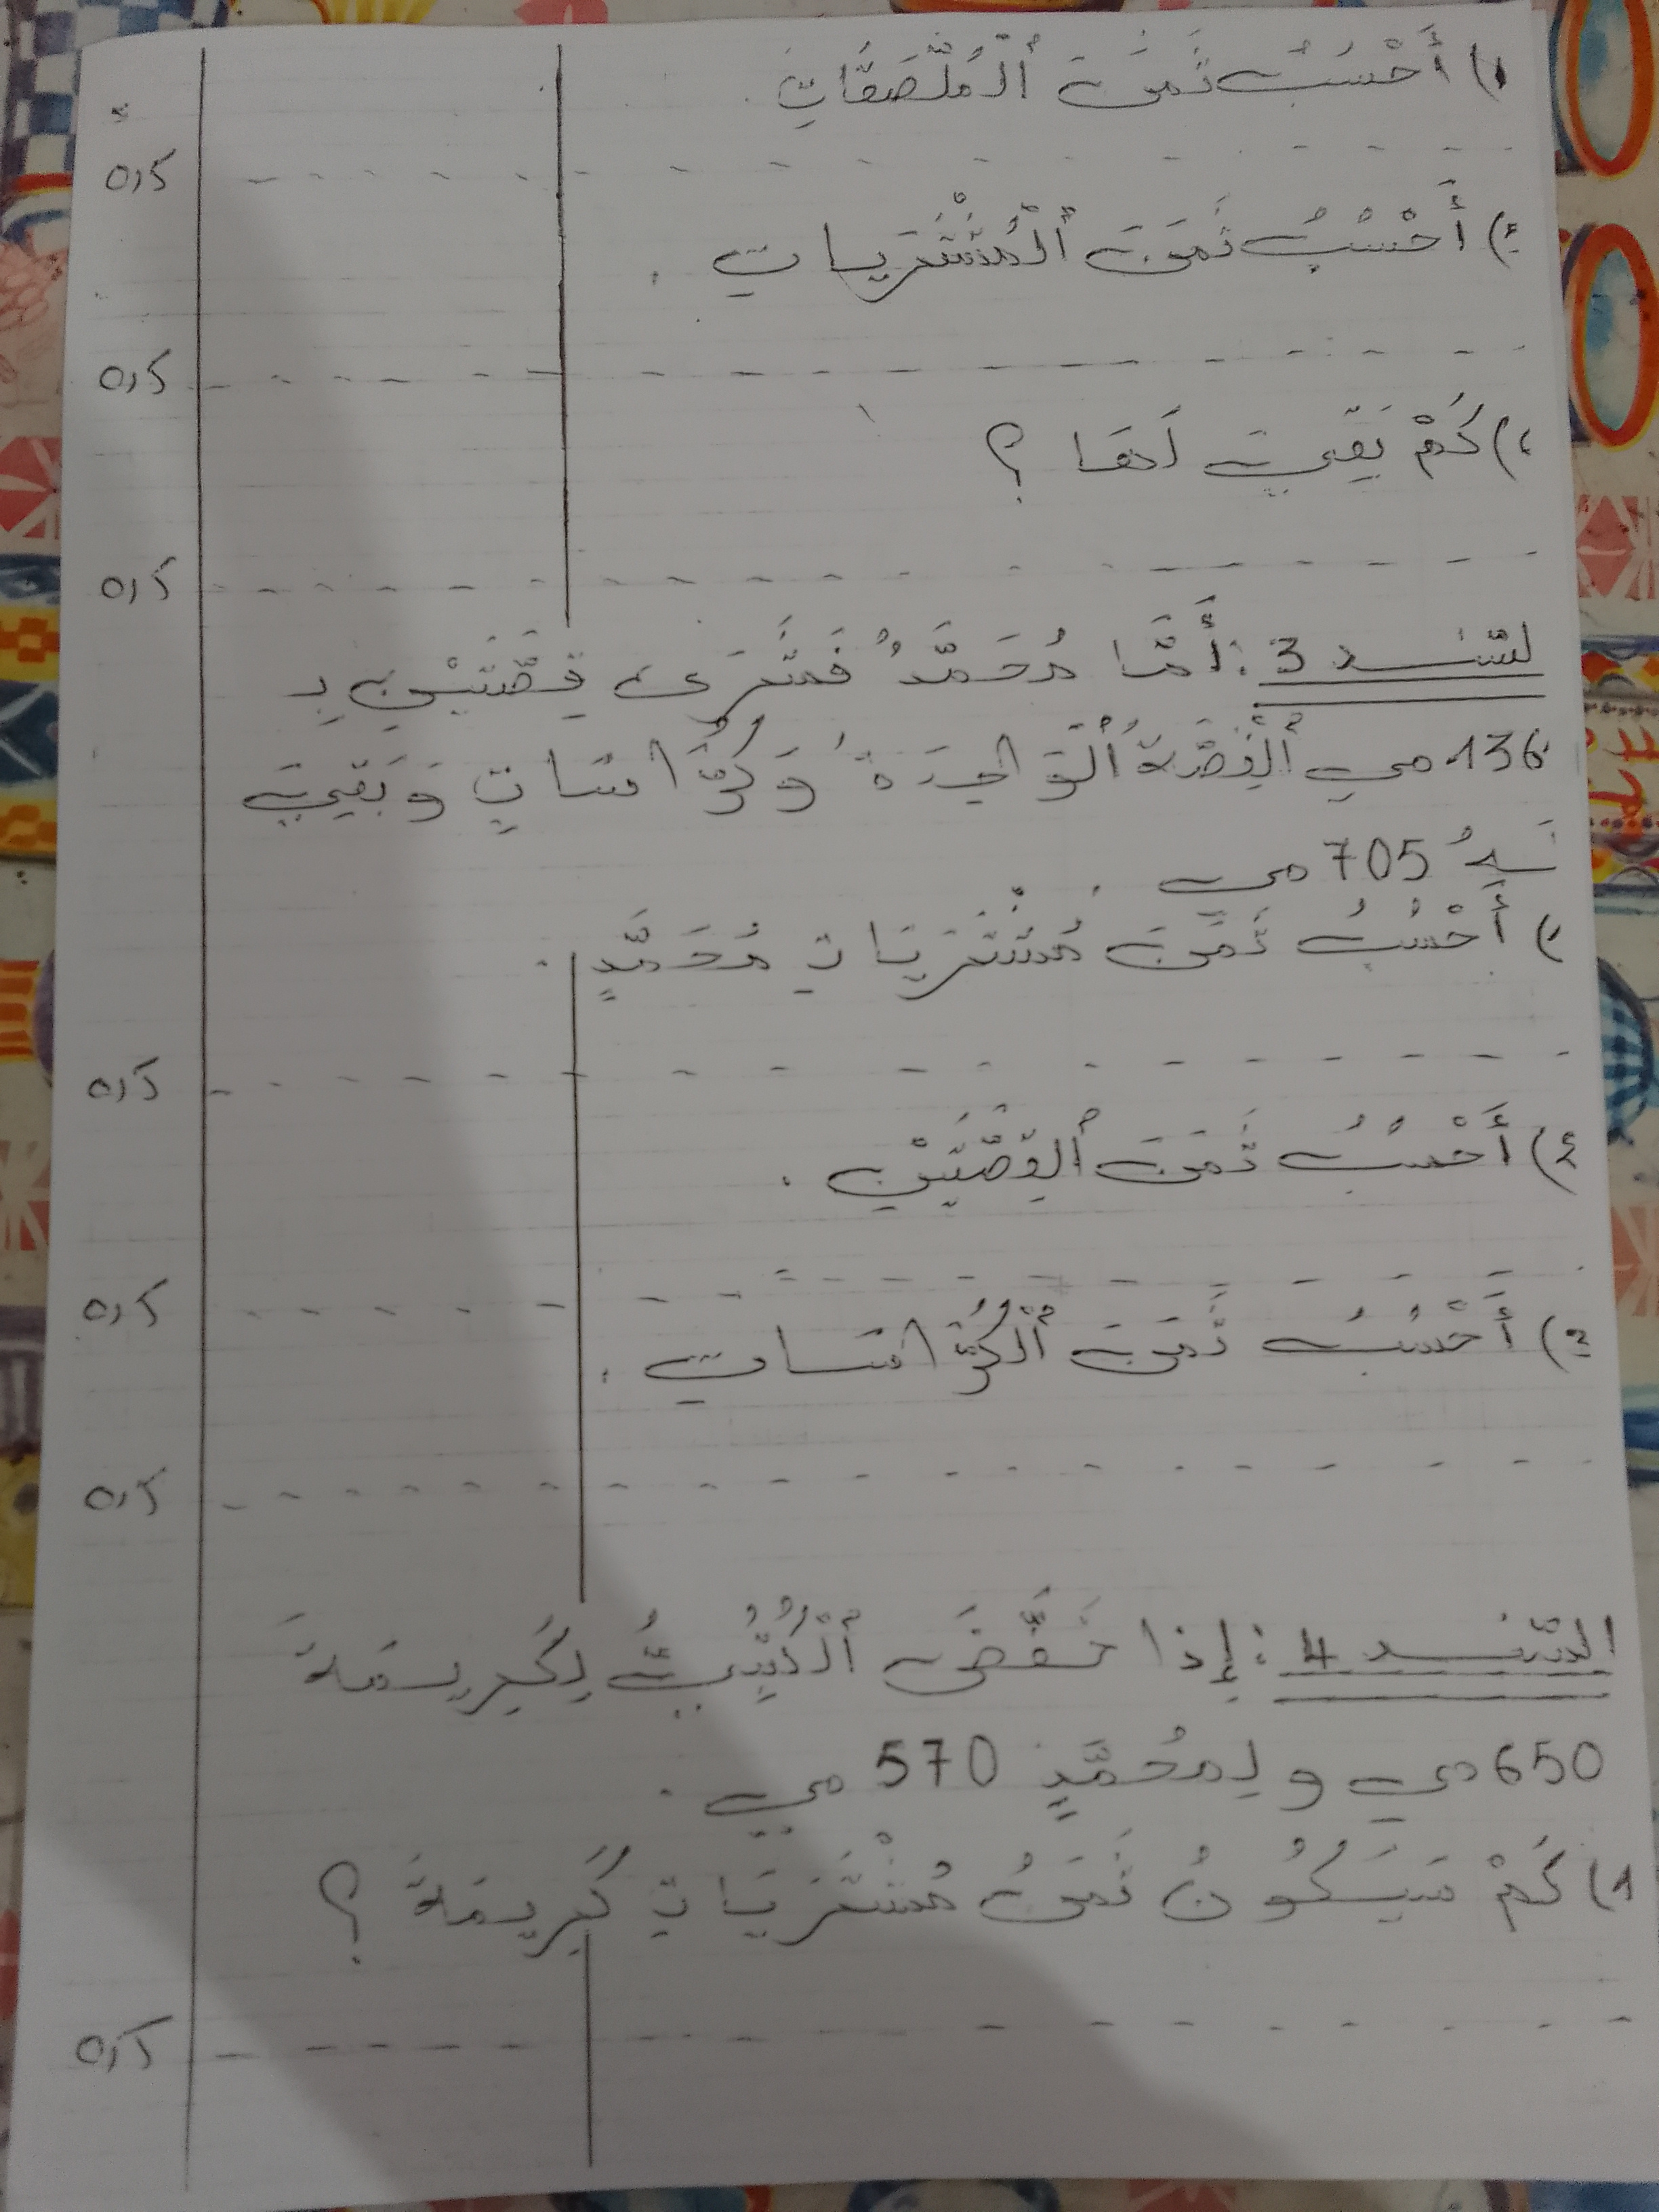 1) أَحْسُبُ ثَمَنَ ٱلْمُلْصَقَاتِ.
0,5
2) أَحْسُبُ ثَمَنَ ٱلْمُشْتَرَيَاتِ.
0,5
) كَمْ بَقِيَ لَهَا ؟
0,5
لسّند 3 : أَمَّا مُحَمَّدُ فَشَرَى قِصَّتَيْنِ بِ
136 مي ٱلْقِصَّةُ ٱلْوَاحِدَةُ وَكُرَّاسَاتٍ وَبَقِيَ
لَهُ 705 مي.
1) أَحْسُبُ ثَمَنَ مُشْتَرَيَاتِ مُحَمَّدٍ.
0,5
2) أَحْسُبُ ثَمَنَ ٱلْقِصَّتَيْنِ.
0,5
3) أَحْسُبُ ثَمَنَ ٱلْكُرَّاسَاتِ.
0,5
السّند 4 : إِذَا خَفَّضَ ٱلْكُتُبِيُّ لِكَرِيمَةَ
650 مي و لِمُحَمَّدٍ 570 مي.
1) كَمْ سَيَكُونُ ثَمَنُ مُشْتَرَيَاتِ كَرِيمَةَ ؟
0,5